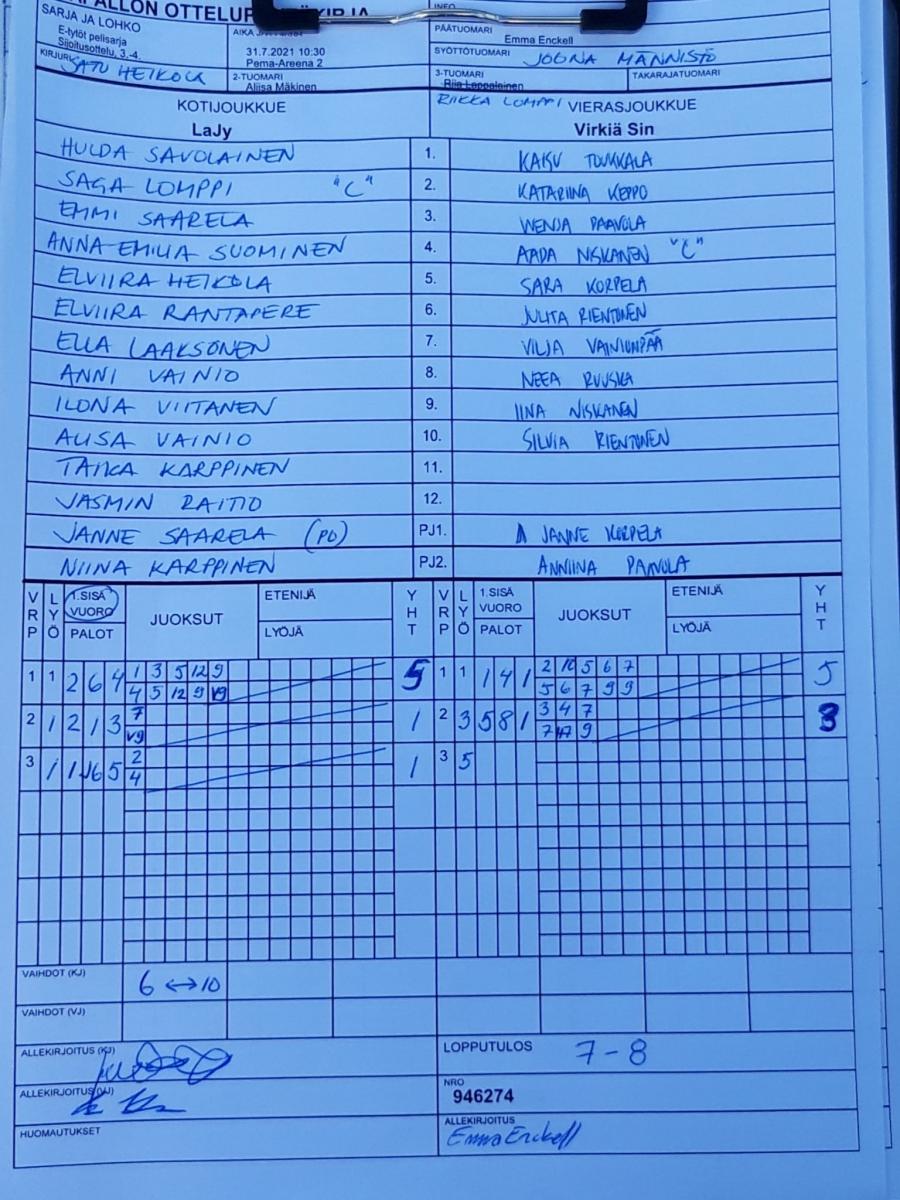 SARJA JA LOHKO
E-tytöt pelisarja
Sijoitusottelu, 3.-4.
KIRJURI SATU HEIKOLA
31.7.2021 10:30
Pema-Areena 2
2-TUOMARI
Aliisa Mäkinen
PÄÄTUOMARI
Emma Enckell
SYÖTTÖTUOMARI JOONA MÄNNISTÖ
3-TUOMARI TAKARAJATUOMARI
Riia Leppalainen
RIIKKA LOMPPI
KOTIJOUKKUE VIERASJOUKKUE
LaJy Virkiä Sin
HULDA SAVOLAINEN 1. KAISU TOUKKALA
SAGA LOMPPI "C" 2. KATARIINA KEPPO
EMMI SAARELA 3. WENJA PAAVOLA
ANNA-EMILIA SUOMINEN 4. AADA NISKANEN "C"
ELVIIRA HEIKOLA 5. SARA KORPELA
ELVIIRA RANTAPERE 6. JULITA RIENTONEN
ELLA LAAKSONEN 7. VILJA VAINIONPÄÄ
ANNI VAINIO 8. NEEA RUUSKA
ILONA VIITANEN 9. IINA NISKANEN
ALISA VAINIO 10. SILVIA RIENTONEN
TAIKA KARPPINEN 11.
JASMIN RAITIO 12.
JANNE SAARELA (PO) PJ1. JANNE KORPELA
NIINA KARPPINEN PJ2. ANNIINA PAAVOLA
VRP LYÖ 1.SISÄ VUORO PALOT JUOKSUT ETENIJÄ LYÖJÄ YHT VRP LYÖ 1.SISÄ VUORO PALOT JUOKSUT ETENIJÄ LYÖJÄ YHT
1 1 2 6 4 1 3 5 12 9 5 1 1 1 4 1 2 10 5 6 7 5
4 5 12 9 5 6 7 9 9
2 1 2 1 3 7 1 2 3 5 8 1 3 4 7 3
V9 7 9
3 1 1 6 5 2 1 3 5
4
VAIHDOT (KJ) 6 ↔ 10
VAIHDOT (VJ)
ALLEKIRJOITUS (KJ) LOPPUTULOS 7-8
ALLEKIRJOITUS (VJ) NRO
946274
HUOMAUTUKSET ALLEKIRJOITUS
Emma Enckell